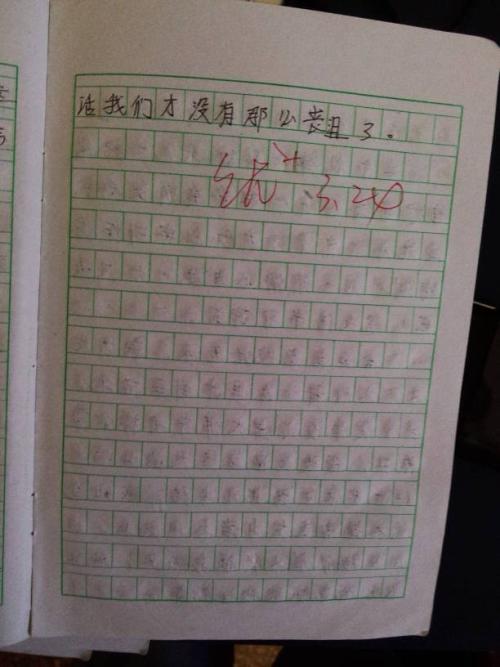 活我们才没有那么丧且了。
优+ 3.20